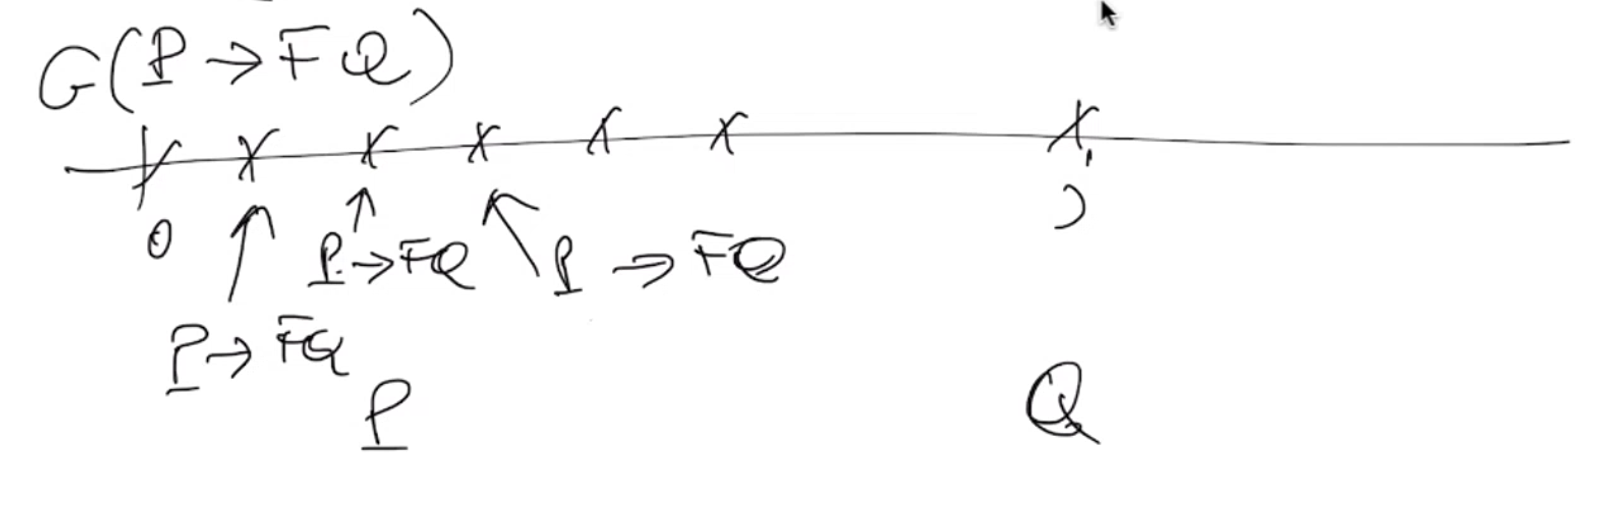 G(P → FQ)
0
P → FQ P → FQ
P → FQ
P Q